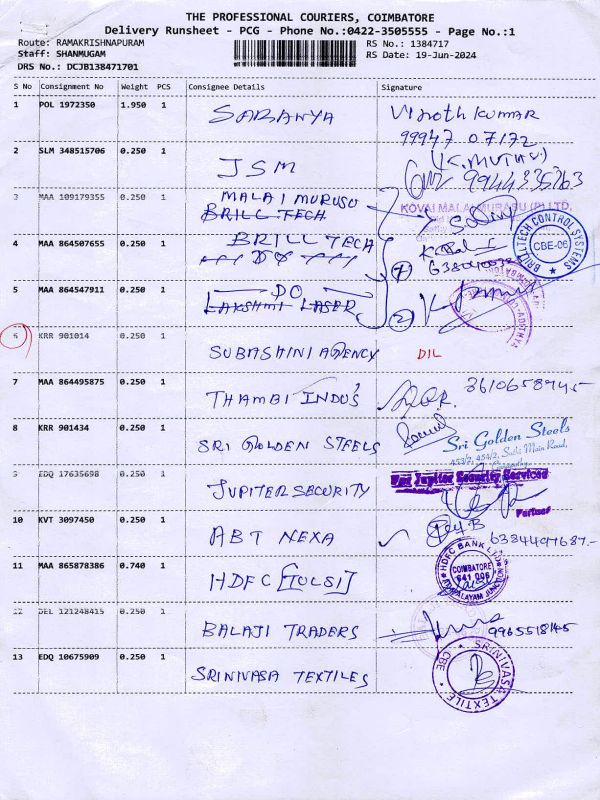 THE PROFESSIONAL COURIERS, COIMBATORE
Delivery Runsheet - PCG - Phone No.:0422-3505555 - Page No.:1
Route: RAMAKRISHNAPURAM
RS No.: 1384717
Staff: SHANMUGAM
RS Date: 19-Jun-2024
DRS No.: DCJB138471701
S No Consignment No Weight PCS Consignee Details Signature
1 POL 1972350 1.950 1 SARANYA Vinoth Kumar
99947 07172
2 SLM 348515706 0.250 1 JSM (K.MUTHU)
9944335763
3 MAA 109179355 0.250 1 MALAI MURUSU
BRILL TECH
KOVAI MALAI MURASU (P) LTD.
4 MAA 864507655 0.250 1 BRILL TECH
BRILLTECH CONTROL SYSTEMS
CBE-06
5 MAA 864547911 0.250 1 DO
LAKSHMI LASER
6 KRR 901014 0.250 1 SUBASHINI AGENCY DIL
7 MAA 864495875 0.250 1 THAMBI INDU'S 3610658945-
8 KRR 901434 0.250 1 SRI GOLDEN STEELS
Sri Golden Steels
453/2, 454/2, Sathi Main Road,
9 EDQ 17635698 0.250 1 JUPITER SECURITY
For Jupiter Security Services
Partner
10 KVT 3097450 0.250 1 ABT NEXA 6384497687-
11 MAA 865878386 0.740 1 HDFC [TULSI]
HDFC BANK LTD
COIMBATORE
641 006
12 DEL 121248415 0.250 1 BALAJI TRADERS 9965518145
13 EDQ 10675909 0.250 1 SRINIVASA TEXTILES
SRINIVASA TEXTILE
CBE